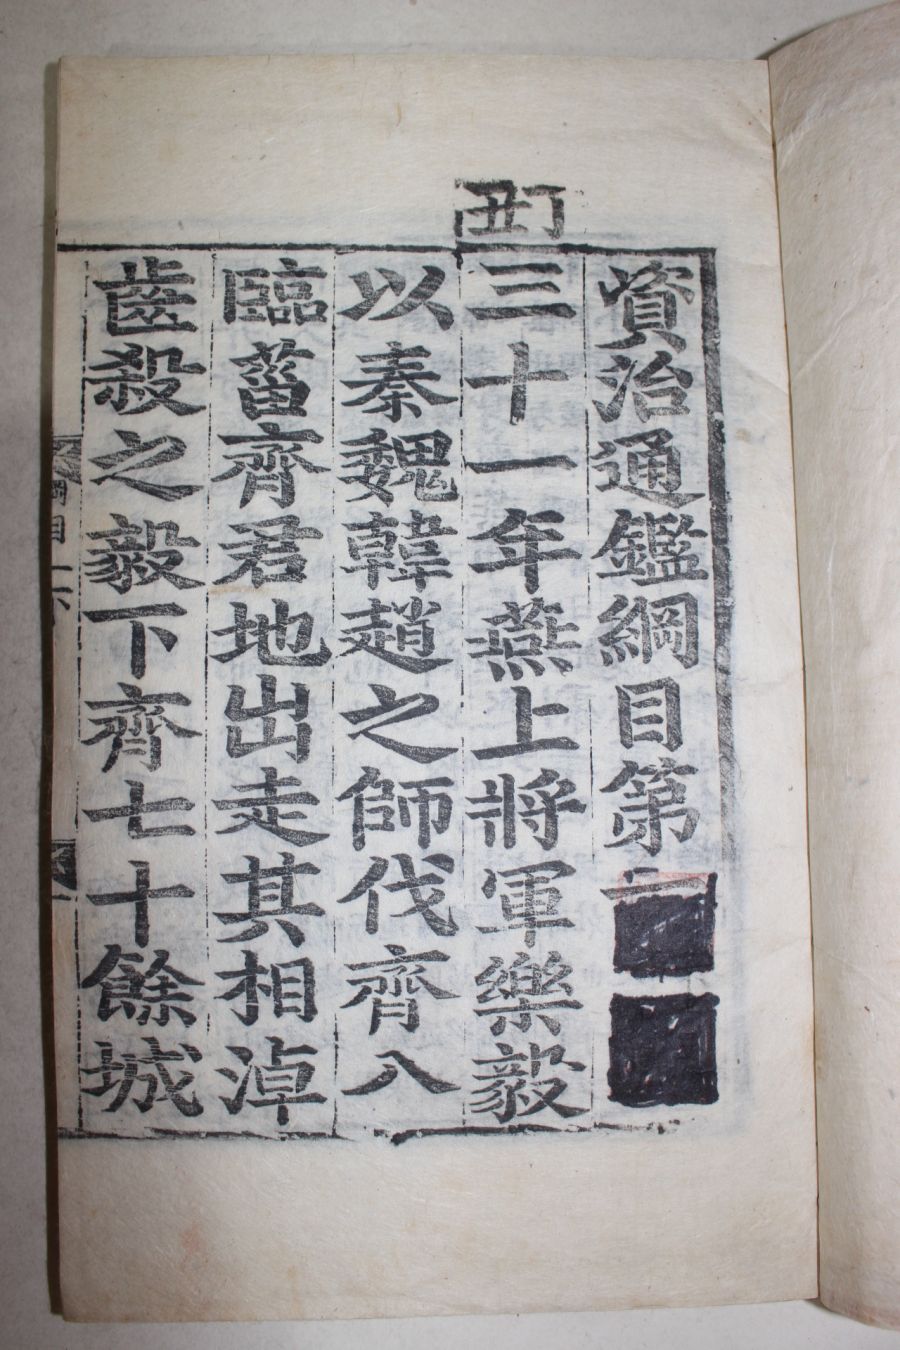 資治通鑑綱目第一
丁丑
三十一年燕上將軍樂毅
以秦魏韓趙之師伐齊入
臨菑齊君地出走其相淖
齒殺之毅下齊七十餘城